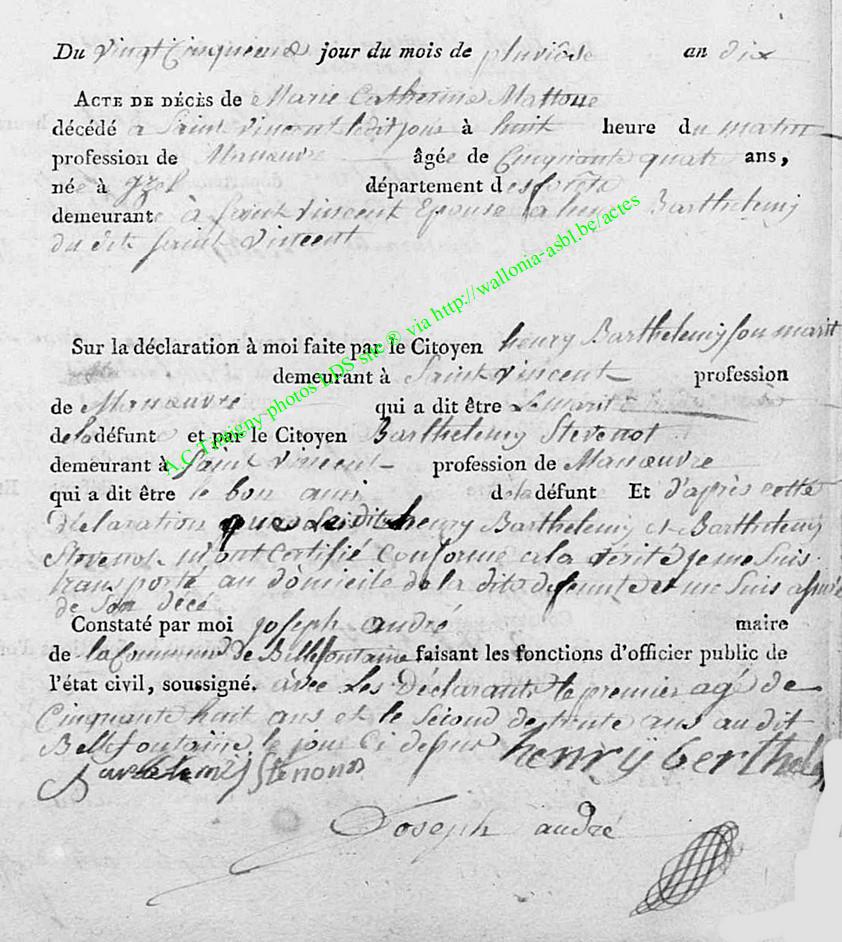 Du vingt Cinquieme jour du mois de pluviose an dix
ACTE DE DÉCÈS de Marie Catherine Mattoue
décédé a Saint Vincent ledit jour à huit heure du matin
profession de Manœuvre âgée de Cinquante quatre ans,
née à izel département des forêts
demeurante à Saint Vincent Epouse a henry Barthelemy
du dit Saint Vincent
Sur la déclaration à moi faite par le Citoyen henry Barthelemy son marit
demeurant à Saint Vincent profession
de Manœuvre qui a dit être Le marit
de la défunte et par le Citoyen Barthelemy Stevenot
demeurant à Saint Vincent profession de Manœuvre
qui a dit être le bon ami de la défunt Et d'après cette
Declaration que Lesdits henry Barthelemy et Barthelemy
Stevenot m'ont certifié conforme a la verité je me suis
transporté au domicile de la dite defunte et me suis assuré
de son décé
Constaté par moi joseph andré maire
de la Commune de Bellefontaine faisant les fonctions d'officier public de
l'état civil, soussigné. avec Les Déclarants le premier agé de
Cinquante huit ans et le second de trente ans au dit
Bellefontaine le jour ci dessus henry berthele
Bartelemij Stenonos
Joseph andré
A.C.T. tigny photos LDS site ® via http://wallonia-asbl.be/actes